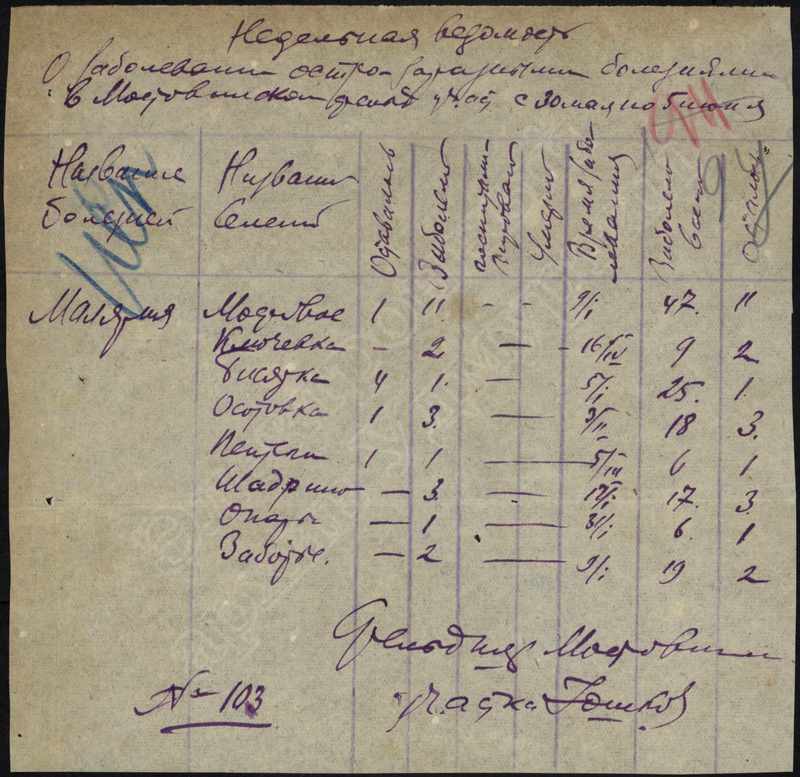 Недельная ведомость
О заболевании остро-заразными болезнями
в Мостовинском фельд. уч. с 30 мая по 6 июня
Название болезней Название селений Оставалось Заболело госпитализировано Умерло Время заболевания Заболело всего Осталось
Малярия Мостовое 1 11 - - 9/I 47. 11
Ключевка - 2 — - 16/IV 9 2
4 1. — 5/I 25. 1.
Осотовка 1 3. — 3/II 18 3.
1 1 — 5/III 6 1
Шадрино — 3. — 12/I 17. 3.
— 1 — 31/I 6. 1
Заборье. — 2 — 9/I 19 2
Фельдшер Мостовин
участка Юшков
№ 103